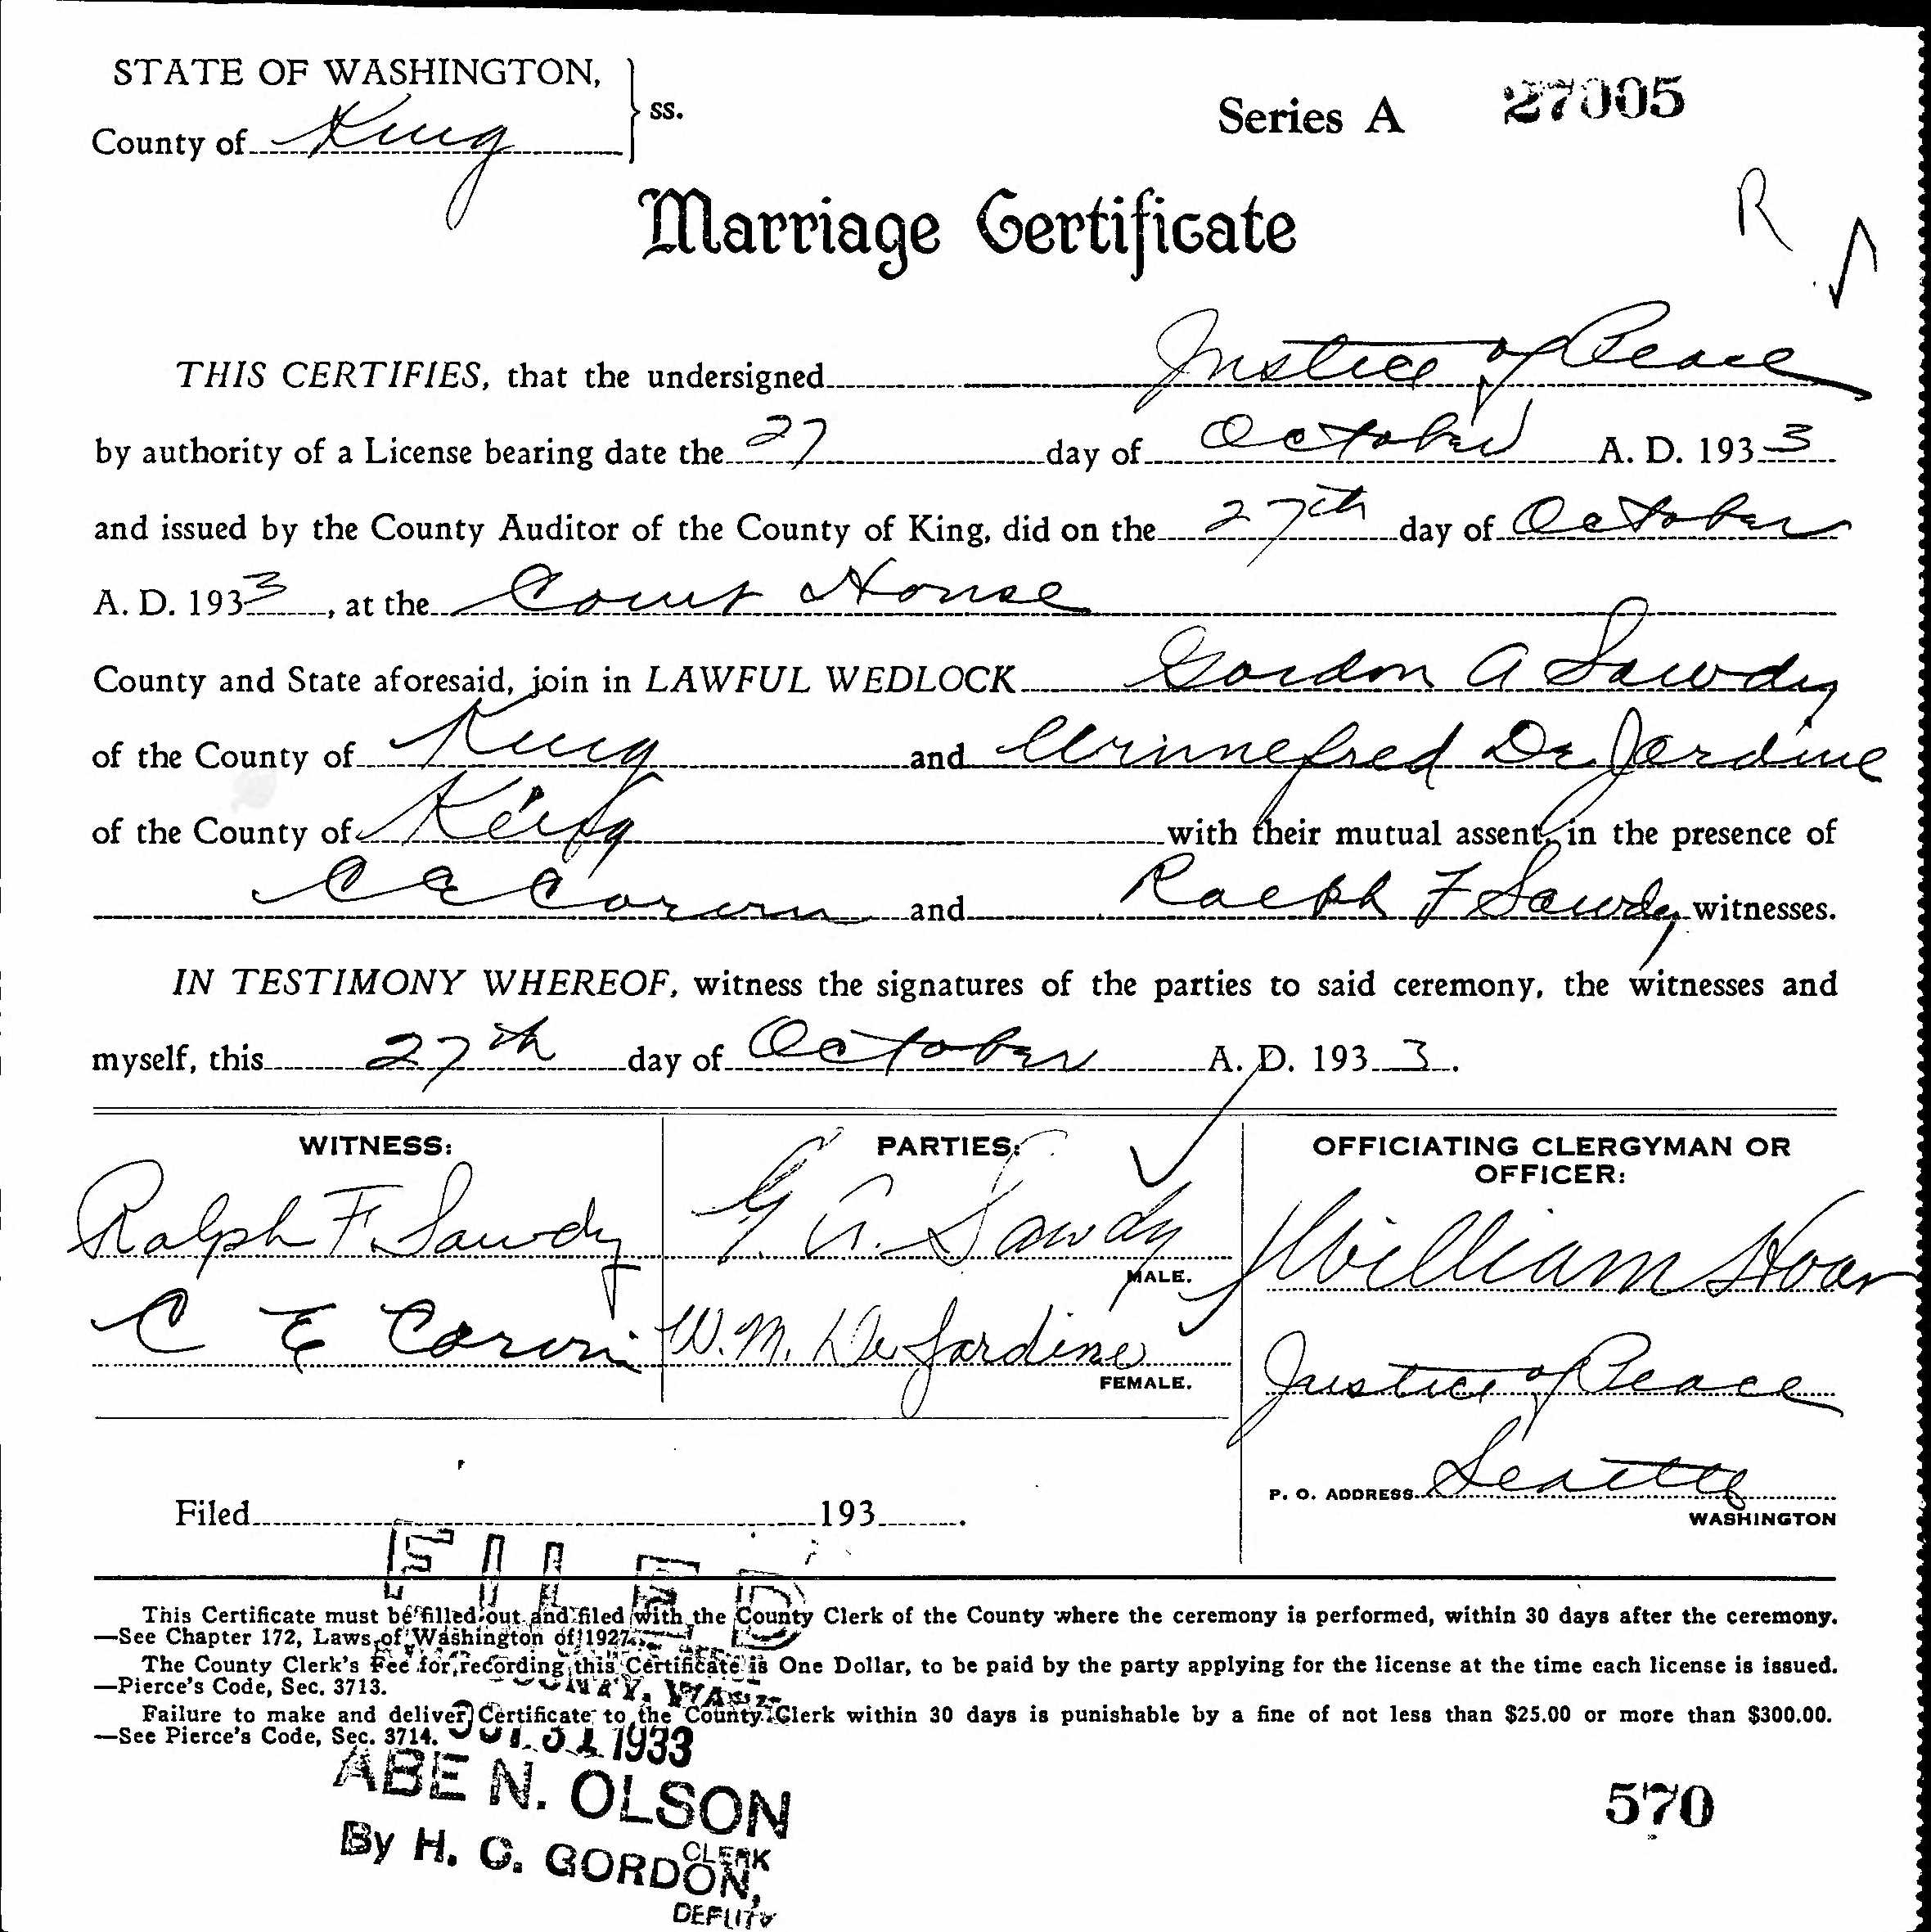 STATE OF WASHINGTON,
County of King
ss.
Series A 27005
Marriage Certificate
R
THIS CERTIFIES, that the undersigned Justice of Peace
by authority of a License bearing date the 27 day of October A. D. 1933
and issued by the County Auditor of the County of King, did on the 27th day of October
A. D. 1933, at the Court House
County and State aforesaid, join in LAWFUL WEDLOCK Gordon A Sawdy
of the County of King and Winnefred De Jardine
of the County of King with their mutual assent, in the presence of
C E and Ralph F Sawdy witnesses.
IN TESTIMONY WHEREOF, witness the signatures of the parties to said ceremony, the witnesses and
myself, this 27th day of October A. D. 1933.
WITNESS:
Ralph F. Sawdy
C E
PARTIES:
G. A. Sawdy
MALE.
W. M. De Jardine
FEMALE.
OFFICIATING CLERGYMAN OR
OFFICER:
William Hoar
Justice of Peace
P. O. ADDRESS Seattle
WASHINGTON
Filed 193 .
FILED
This Certificate must be filled out and filed with the County Clerk of the County where the ceremony is performed, within 30 days after the ceremony.
—See Chapter 172, Laws of Washington of 1927.
The County Clerk's Fee for recording this Certificate is One Dollar, to be paid by the party applying for the license at the time each license is issued.
—Pierce's Code, Sec. 3713.
COUNTY, WASH.
Failure to make and deliver Certificate to the County Clerk within 30 days is punishable by a fine of not less than $25.00 or more than $300.00.
—See Pierce's Code, Sec. 3714.
OCT 31 1933
ABE N. OLSON
CLERK
By H. C. GORDON,
DEPUTY
570